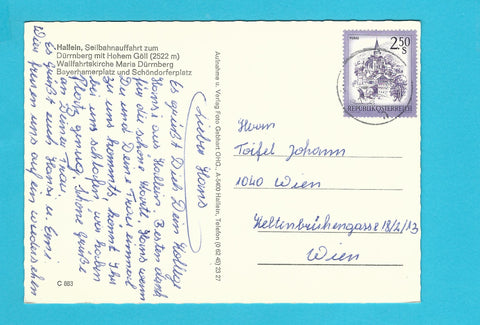 Hallein, Seilbahnauffahrt zum
Dürrnberg mit Hohem Göll (2522 m)
Wallfahrtskirche Maria Dürrnberg
Bayerhamerplatz und Schöndorferplatz
Lieber Hans
Es grüßt Dich Dein Kollege
Hansi aus Hallein. Besten Dank
für die schöne Karte. Hans wenn
Du und Deine Frau einmal
zu uns kommts, könnt Ihr
bei uns schlafen, wir haben
Platz genug. Schöne Grüße
an Deine Frau.
Es grüßt euch Hans u. Erni
Wir freuen uns auf ein wiedersehen
C 883
Aufnahme u. Verlag Foto Gebhart OHG., A-5400 Hallein, Telefon (0 62 45) 23 27
2.50
S
REPUBLIK ÖSTERREICH
Herrn
Toifel Johann
1040 Wien
Kettenbrückengasse 18/2/13
Wien